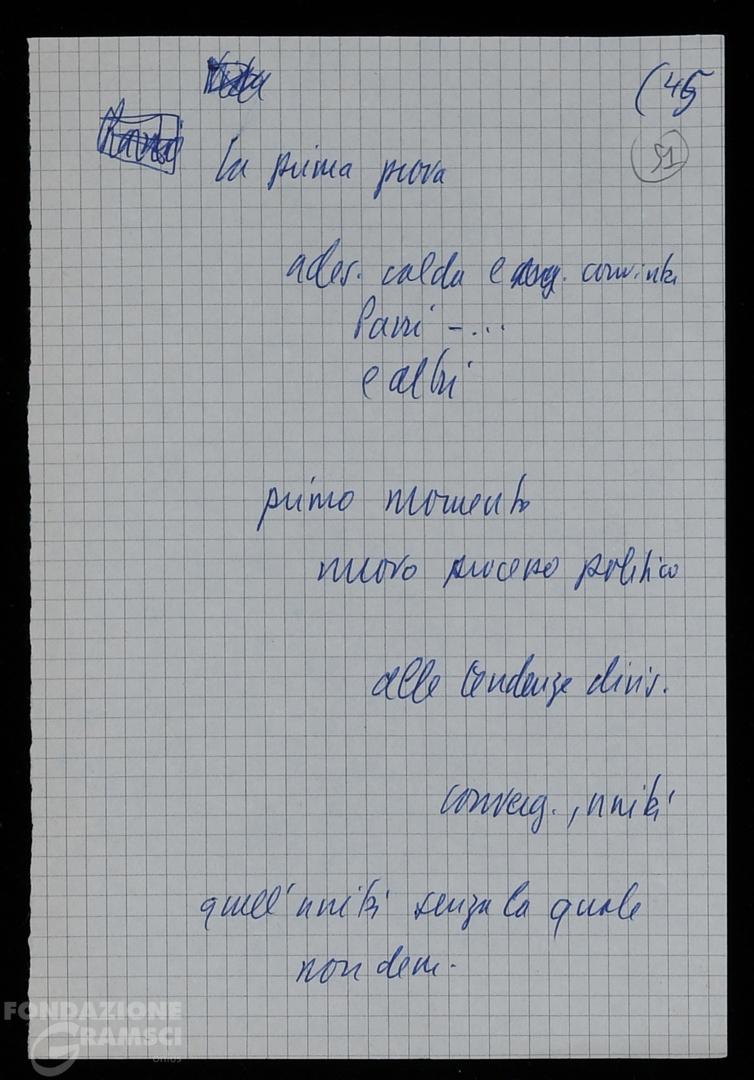 (45
51
la prima prova
ades. calda e convinta
Parri - ...
e altri
primo momento
nuovo processo politico
alle tendenze divis.
converg., unità
quell'unità senza la quale
non dem.
FONDAZIONE
GRAMSCI
onlus